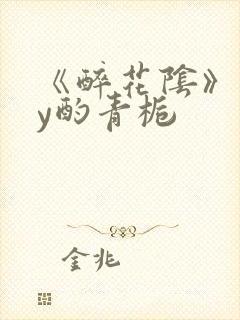 《醉花陰》
y酌青栀
金兆